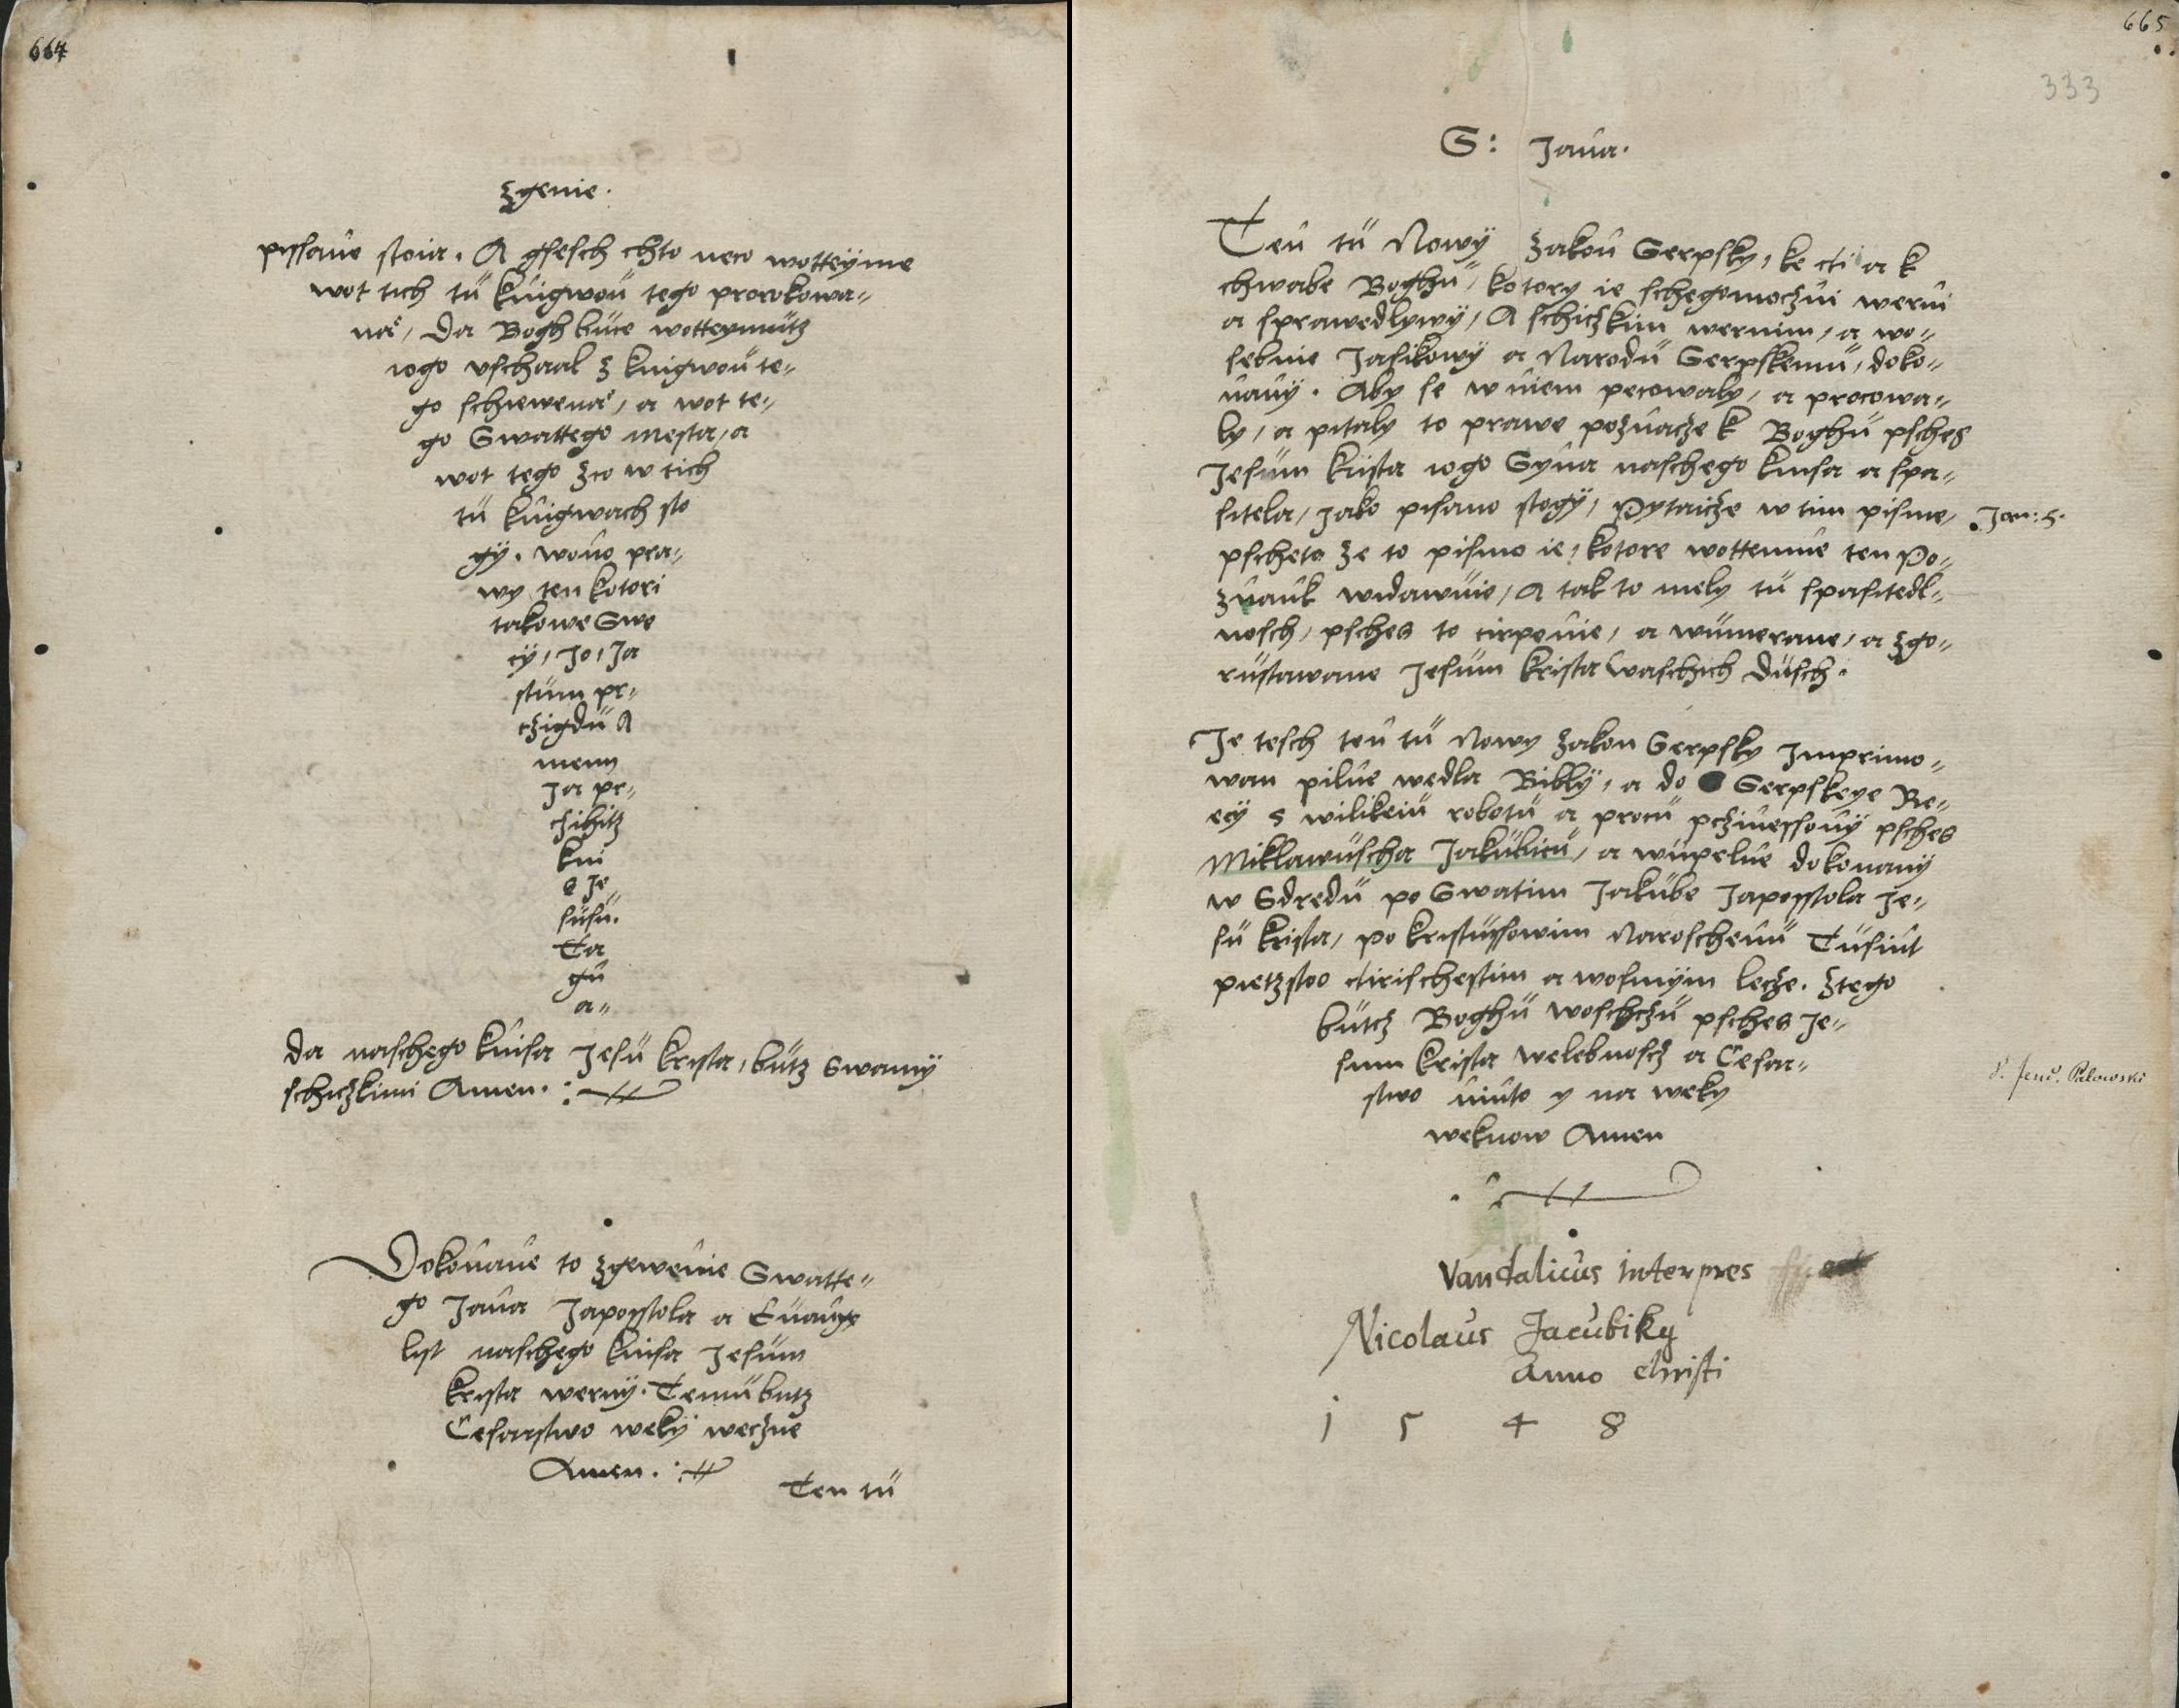 664
Zgenie.
pissane stoia. A gsesch chto neco wotteÿme
wot tich tü knigwoü tego prorokowa„
na', da Bogh büce wotteymütz
iogo vschaal z knigwoü te„
go schiewena', a wot te„
go Swattego mesta, a
wot tego zco w tich
tü knigwach sto
gÿ. wono pra„
wy ten kotori
takowe Swe
cÿ, Jo, Ja
stüm pr„
czigdü A
menn
Ja pr„
chihitz
kni
s Je
süsü.
Ta
gn
a„
da naschego knisa Jesü krista, bütz swamÿ
schiczkimi Amen.
Dokonane to Zgewenie Swatte„
go Jana Japosstola a Euange
list naschego knisa Jesüm
krista wernÿ. Temü butz
Cesarstwo wekÿ weczne
Amen.
Ten tü
665
333
S: Jana.
Ten tü Nowÿ Zakon Serpsky, ke cti a k
chwabe Boghü, kotory ie schegomoczni werni
a sprawedlywÿ, A schiczkim wernim, a wo„
sebnie Jasikowÿ a Narodü Serpskemü, doko„
nanÿ. Aby se w niem pecowaly, a procowa„
ly, a pitaly to prawe poznacze k Boghü psches
Jesüm krista iogo Syna naschego knisa a spa„
sitela, jako pisano stogÿ, Pytaicze w tim pisme,
Jan: 5.
pscheto ze to pismo ie, kotore wottemne ten Po„
znank widawnie, A tak to mely tü spasitedl„
nosch, psches to cirpenie, a wümerane, a zgo„
rüstawane Jesüm krista waschich düsch.
Je tesch ten tü Nowy Zakon Serpsky Imprimo„
wan pilne wedla Biblÿ, a do Serpskeye Re„
cÿ s wilikeiü robotü a procü pczinessonÿ psches
Miklawüscha Jakübicü, a wüpelne dokonanÿ
w Sdredü po Swatim Jakübe Japosstola Je„
sü krista, po kristüssowim Naroschenü Tüsint
pietzstoo ctirischestim a wosmÿm lecze. Ztego
bütcz Boghü woschczü psches Je„
sum krista welebnoscz a Cesar„
stwo ninto y na weky
weknow Amen
Vandalicus interpres
Nicolaus Jacubiky
Anno christi
1 5 4 8